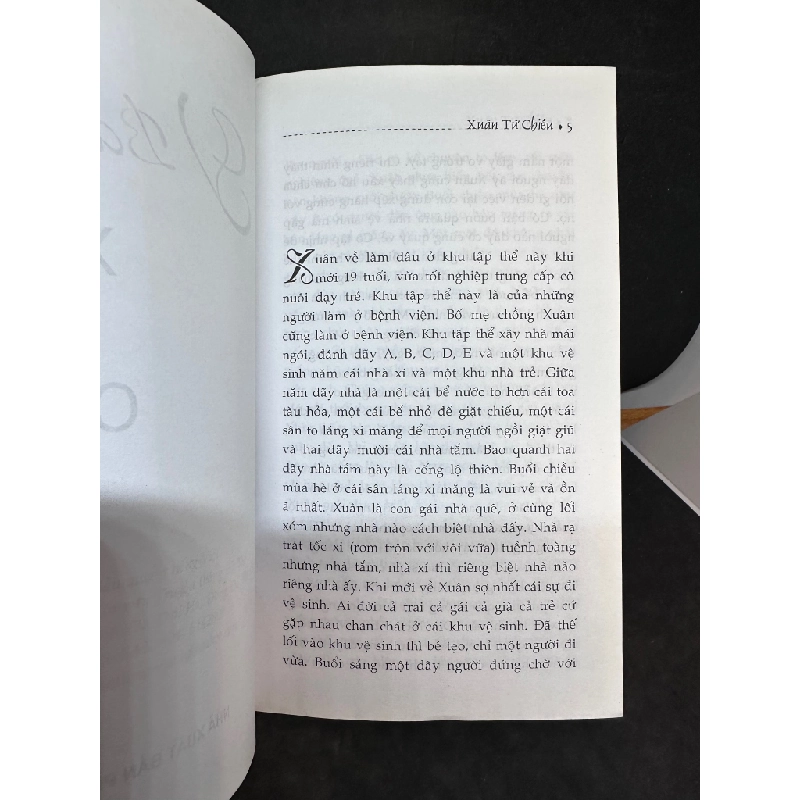 Xuân Từ Chiều • 5
Xuân về làm dâu ở khu tập thể này khi
mới 19 tuổi, vừa tốt nghiệp trung cấp cô
nuôi dạy trẻ. Khu tập thể này là của những
người làm ở bệnh viện. Bố mẹ chồng Xuân
cũng làm ở bệnh viện. Khu tập thể xây nhà mái
ngói, đánh dãy A, B, C, D, E và một khu vệ
sinh năm cái nhà xí và một khu nhà trẻ. Giữa
năm dãy nhà là một cái bể nước to hơn cái toa
tàu hỏa, một cái bể nhỏ để giặt chiếu, một cái
sân to láng xi măng để mọi người ngồi giặt giũ
và hai dãy mười cái nhà tắm. Bao quanh hai
dãy nhà tắm này là cống lộ thiên. Buổi chiều
mùa hè ở cái sân láng xi măng là vui vẻ và ồn
ã nhất. Xuân là con gái nhà quê, ở cùng lối
xóm nhưng nhà nào cách biệt nhà đấy. Nhà rạ
trát tốc xi (rơm trộn với vôi vữa) tuềnh toàng
nhưng nhà tắm, nhà xí thì riêng biệt nhà nào
riêng nhà ấy. Khi mới về Xuân sợ nhất cái sự đi
vệ sinh. Ai đời cả trai cả gái cả già cả trẻ cứ
gặp nhau chan chát ở cái khu vệ sinh. Đã thế
lối vào khu vệ sinh thì bé tẹo, chỉ một người đi
vừa. Buổi sáng một dãy người đứng chờ với